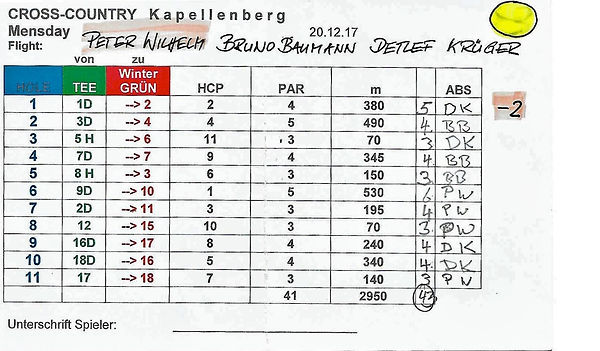 CROSS-COUNTRY Kapellenberg
Mensday 20.12.17
Flight: PETER WILHELM BRUNO BAUMANN DETLEF KRÜGER
von zu
HOLE TEE Winter GRÜN HCP PAR m ABS
1 1D --> 2 2 4 380 5 DK -2
2 3D --> 4 4 5 490 4 BB
3 5 H --> 6 11 3 70 3 DK
4 7D --> 7 9 4 345 4 BB
5 8 H --> 3 6 3 150 3 BB
6 9D --> 10 1 5 530 6 PW
7 2D --> 11 3 3 195 4 PW
8 12 --> 15 10 3 70 3 PW
9 16D --> 17 8 4 240 4 DK
10 18D --> 16 5 4 340 4 DK
11 17 --> 18 7 3 140 3 PW
41 2950 43
Unterschrift Spieler: